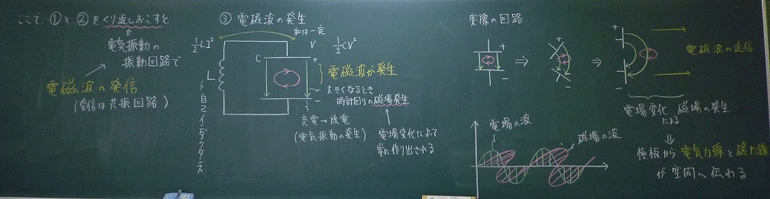 ここで、①と②をくり返しおこすと
電気振動の
振動回路で
電磁波の発信
(受信は共振回路)
③ 電磁波の発生
和は一定
½LI²
V
½CV²
L
自己インダクタンス
C
+
−
電磁波が発生
大きくなるとき
時計回りの磁場発生
充電→放電
(電気振動の発生)
電場変化によって
常に作り出される
実際の回路
+
−
⇒
+
−
⇒
+
−
電磁波の送信
電場変化
による
磁場の発生
⇓
極板から電気力線と磁力線
が空間へ伝わる
電場の波
磁場の波